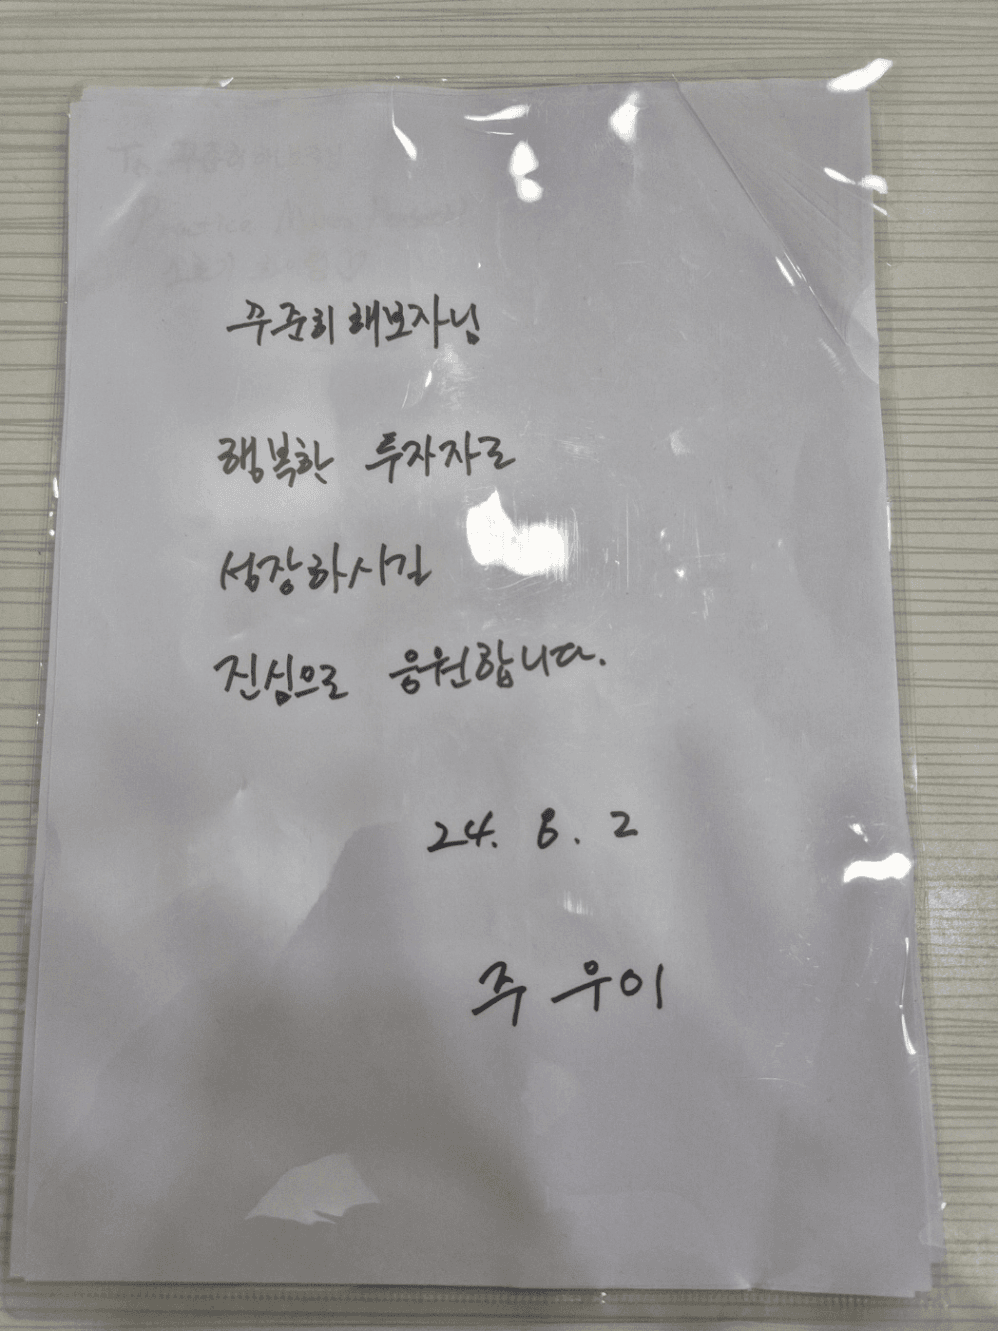 꾸준히해보자님
행복한 투자자로
성장하시길
진심으로 응원합니다.
24. 8. 2
주우이